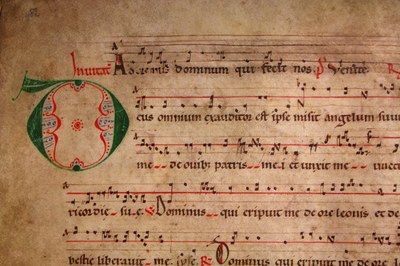 Inuitat Adoremus dominum qui fecit nos. P Uenite R
Deus omnium exauditor est ipse misit angelum suum
me de ouib; patris me.i et unxit me
ricordie su.e. V Dominus qui eripuit me de ore leonis et de
bestie liberauit me. ipse. R. Dominus qui eripuit me de ore